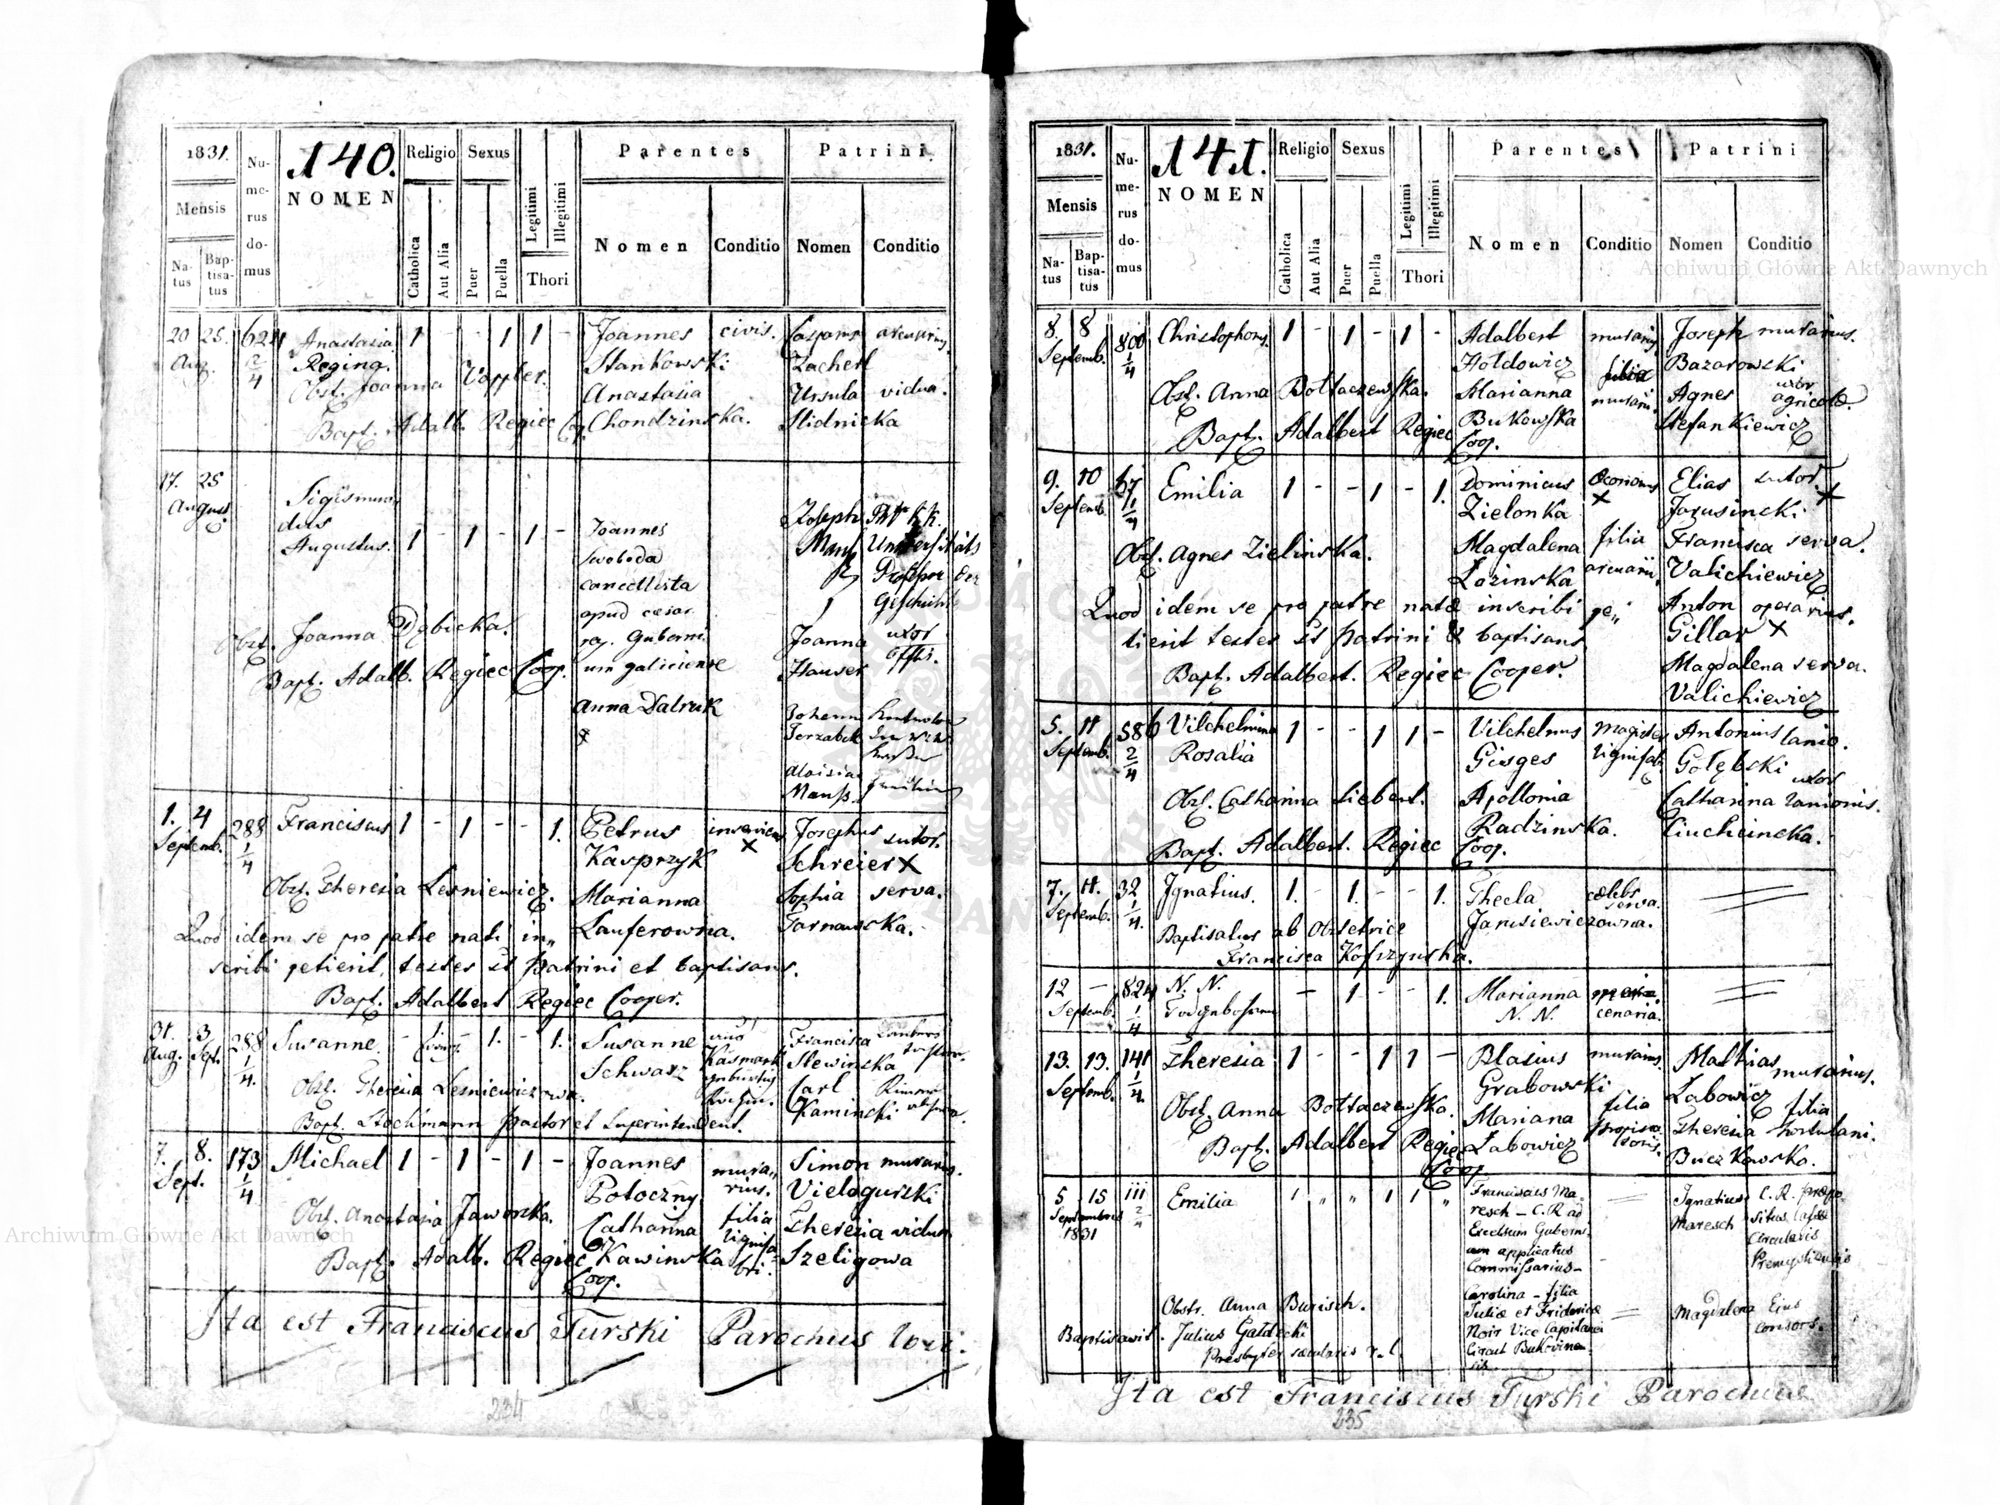 1831.
140.
Numerus domus
NOMEN
Religio
Sexus
Parentes
Patrini
Mensis
Natus
Baptisatus
Catholica
Aut Alia
Puer
Puella
Legitimi
Illegitimi
Thori
Nomen
Conditio
Nomen
Conditio
20 25. 624 Anastasia 1 - - 1 1 - Joannes civis.
Aug. 2/4 Regina. Stankowski Zacherl
Obst. Joanna Anastasia Ursula vidua.
Bapt. Adalb. Regiec Coop. Chondzinska. Slidnicka
17. 25 Sigismun
August. dus
Augustus. 1 - 1 - 1 - Joannes Joseph K.K.
Swoboda Mauß Universitäts
cancellista Professor der
apud caesar. Geschichte
reg. Guberni
um galiciense
Joanna uxor
Hauser
Obst. Joanna Dębicka.
Bapt. Adalb. Regiec Coop.
Anna Datruk
Johann
Jerzabek
Aloisia
Mauß.
1. 4 288 Franciscus 1 - 1 - - 1. Petrus Josephus sutor.
Septemb. 1/4 Kasprzyk X Schreier X
Obst. Theresia Lesniewicz. Marianna Sophia serva.
Quod idem se pro patre nati in„ Lauferowna. Tarnawska.
scribi petierit, testes st patrini et baptisans.
Bapt. Adalbert Regiec Cooper.
31. 3 288 Susanne. - 1. - 1. Susanne Francisca
Aug. Sept. 1/4. Schwarz Käsmark Slewinska
Obst. Theresia Lesniewiczowa. Carl
Bapt. Stockmann pastor et Superintendent. Kaminski
7. 8. 173 Michael 1 - 1 - 1 - Joannes mura„ Simon murarius.
Sept. 1/4 Potoczny rius. Vielogurski
Obst. Anastasia Jaworska. Catharina filia Theresia vidua
Bapt. Adalb. Regiec Kawinska Szeligowa
Coop.
Ita est Franciscus Turski Parochus loci.
234
1831.
141.
Numerus domus
NOMEN
Religio
Sexus
Parentes
Patrini
Mensis
Natus
Baptisatus
Catholica
Aut Alia
Puer
Puella
Legitimi
Illegitimi
Thori
Nomen
Conditio
Nomen
Conditio
8. 8 800 Christophorus 1 - 1 - 1 - Adalbert murarius Joseph murarius.
Septemb. 1/4 Hołdowicz filia Bazarowski
Obst. Anna Boltaczewska. Marianna murarii. Agnes uxor agricolae.
Bapt. Adalbert Regiec Bukowska Stefankiewicz
Coop.
9. 10 67 Emilia 1 - - 1 - 1. Dominicus Oeconomus Elias sutor.
Septemb. 1/4 Zielonka X Jarusincki. X
Obst. Agnes Zielinska. Magdalena filia Francisca serva.
Lozinska arcuarii. Valichiewicz
Quod idem se pro patre natae inscribi pe„ Anton operarius.
tierit testes st patrini & baptisans Gillar X
Bapt. Adalbert. Regiec Cooper. Magdalena serva.
Valichiewicz
5. 11 586 Vilchelmina 1 - - 1 1 - Vilchelmus Magister Antonius lanio.
Septemb. 2/4 Rosalia Gisges lignifab. Gołębski uxor
Obst. Catharina Liebert. Apollonia Catharina lanionis.
Bapt. Adalbert. Regiec Radzinska. Ciuchcincka.
Coop.
7. 11. 32 Ignatius. 1. - 1. - - 1. Thecla caelebs serva.
Septemb. 1/4. Baptisatus ab Obstetrice Janusiewiczowna.
Francisca Kofszynska.
12 - 824 N. N. - 1 - - 1. Marianna
Septemb. 1/4 N. N. cenaria.
13. 13. 141 Theresia 1 - - 1 1 - Blasius murarius. Mathias murarius.
Septemb. 1/4 Grabowski Labowicz
Obst. Anna Boltaczewska. Mariana filia Theresia filia hortulani.
Bapt. Adalbert Regiec Labowicz Buczkowska.
Coop.
5 15 111 Emilia 1 „ „ 1 1 „ Franciscus Ma- Ignatius C. R. praepo
Septembris 2/4 resch - C. R. ad Maresch situs
1831 Excelsum Guberni Circularis
um applicatus Premysliensis
Commissarius-
Carolina - filia
Obstr. Anna Burisch. Juliae et Friderici Magdalena Ejus
Baptisavit. Julius Gałdecki Noir Vice Capitanei consors.
Presbyter saecularis r. l. Circul Bukovinen
sis.
Ita est Franciscus Turski Parochus
235
Archiwum Główne Akt Dawnych
Archiwum Główne Akt Dawnych